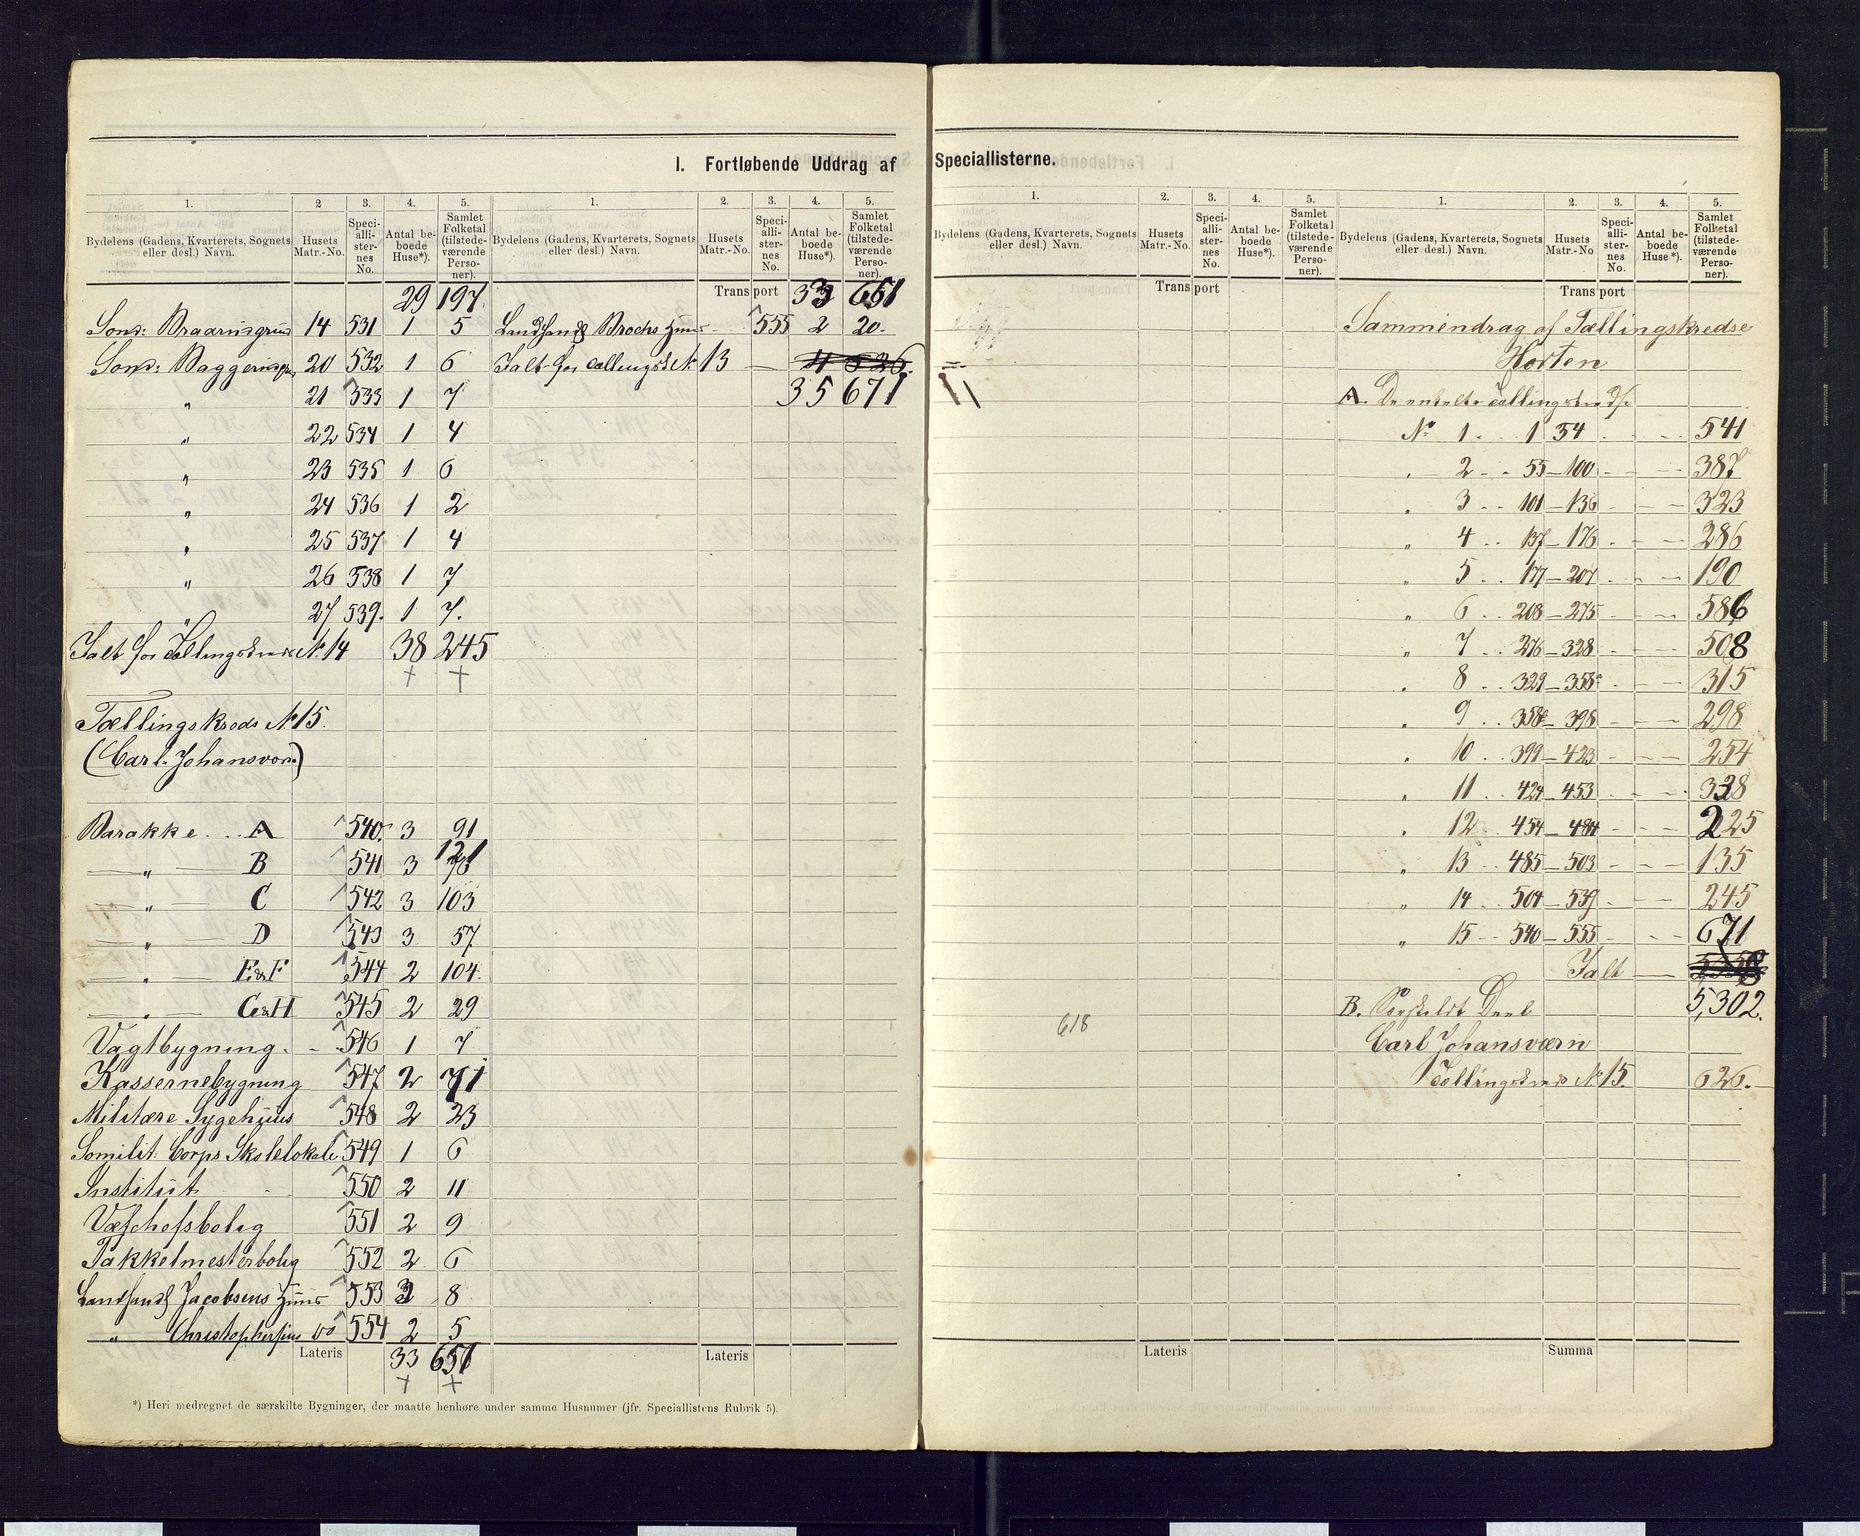 I. Fortløbende Uddrag af Speciallisterne.
1. 2 3. 4. 5. 1. 2. 3. 4. 5.
Bydelens (Gadens, Kvarterets, Sognets eller desl.) Navn. Husets Matr.-No. Speciallisternes No. Antal beboede Huse*). Samlet Folketal (tilstedeværende Personer).
Bydelens (Gadens, Kvarterets, Sognets eller desl.) Navn. Husets Matr.-No. Speciallisternes No. Antal beboede Huse*). Samlet Folketal (tilstedeværende Personer).
29 197
Sønd: Braarudgrund 14 531 1 5
Sønd: Baggerud 20 532 1 6
" 21 533 1 7
" 22 534 1 4
" 23 535 1 6
" 24 536 1 2
" 25 537 1 4
" 26 538 1 7
" 27 539. 1 7.
Ialt for Tællingskreds No. 14 38 245
+ +
Tællingskreds No 15.
(Carl-Johansværn)
Barakke A 540. 3 91
" B 541 3 121
" C 542 3 103
" D 543 3 57
" E&F 544 2 104.
" G&H 545 2 29
Vagtbygning. 546 1 7
Kassernebygning 547 2 71
Militære Sygehuus 548 2 23
Sømilit: Corps Skolelokale 549 1 6
Institut 550 2 11
Værfchefsbolig 551 2 9
Takkelmesterbolig 552 2 6
Jacobsens Huus 553 3 8
" Christophersens do 554 2 5
Lateris 33 651
+ +
Transport 33 651
Brochs Huus 555 2 20.
Ialt for Tællingskr. No. 13 4 526.
35 671
Lateris
*) Heri medregnet de særskilte Bygninger, der maatte henhøre under samme Husnumer (jfr. Speciallistens Rubrik 5).
1. 2. 3. 4. 5. 1. 2. 3. 4. 5.
Bydelens (Gadens, Kvarterets, Sognets eller desl.) Navn. Husets Matr.-No. Speciallisternes No. Antal beboede Huse*). Samlet Folketal (tilstedeværende Personer).
Bydelens (Gadens, Kvarterets, Sognets eller desl.) Navn. Husets Matr.-No. Speciallisternes No. Antal beboede Huse*). Samlet Folketal (tilstedeværende Personer).
Transport
618
Lateris
Transport
Sammendrag af Tællingskredse
Horten
A. De enkelte Tællingskredse
No 1. 1 54 541
" 2 55-100 387
" 3 101-136 323
" 4 137-176 286
" 5 177-207 190
" 6 208-275 586
" 7 276-328 508
" 8 329-358 315
" 9 358-398 298
" 10 399-423 254
" 11 424-453 338
" 12 454-484 225
" 13 485-503 135
" 14 504-539 245
" 15 540-555 671
Ialt
5,302.
B. Særskildt Deel
Carl Johansværn
Tællingskreds No 15. 626.
Summa